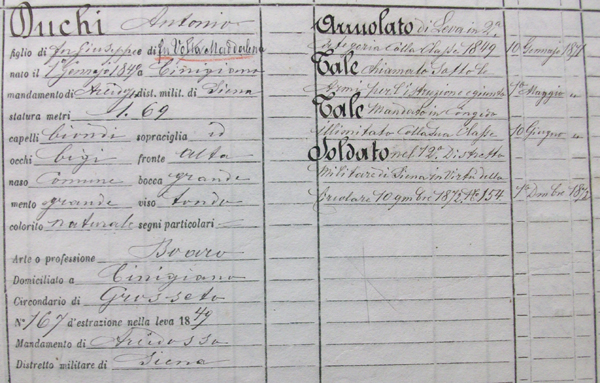 Duchi Antonio
figlio di fu Giuseppe e di fu Volta Maddalena
nato il 1° Gennajo 1849 a Cinigiano
mandamento di Arcidº dist. milit. di Siena
statura metri 1. 69
capelli biondi sopraciglia id
occhi bigi fronte alta
naso Comune bocca grande
mento grande viso tondo
colorito naturale segni particolari
Arte o professione Boaro
Domiciliato a Cinigiano
Circondario di Grosseto
N° 167 d'estrazione nella leva 1849
Mandamento di Arcidosso
Distretto militare di Siena
Arruolato di Leva in 2ª
Categoria Colla Classe 1849 10 Gennajo 187
Tale chiamato sotto le
Armi per l'istruzione e giunto 1° Maggio
Tale Mandato in Congedo
illimitato Colla sua Classe 10 Giugno
Soldato nel 12° Distretto
Militare di Siena in virtù della
Circolare 10 9mbre 1872 N° 154 1° Dembre 1872